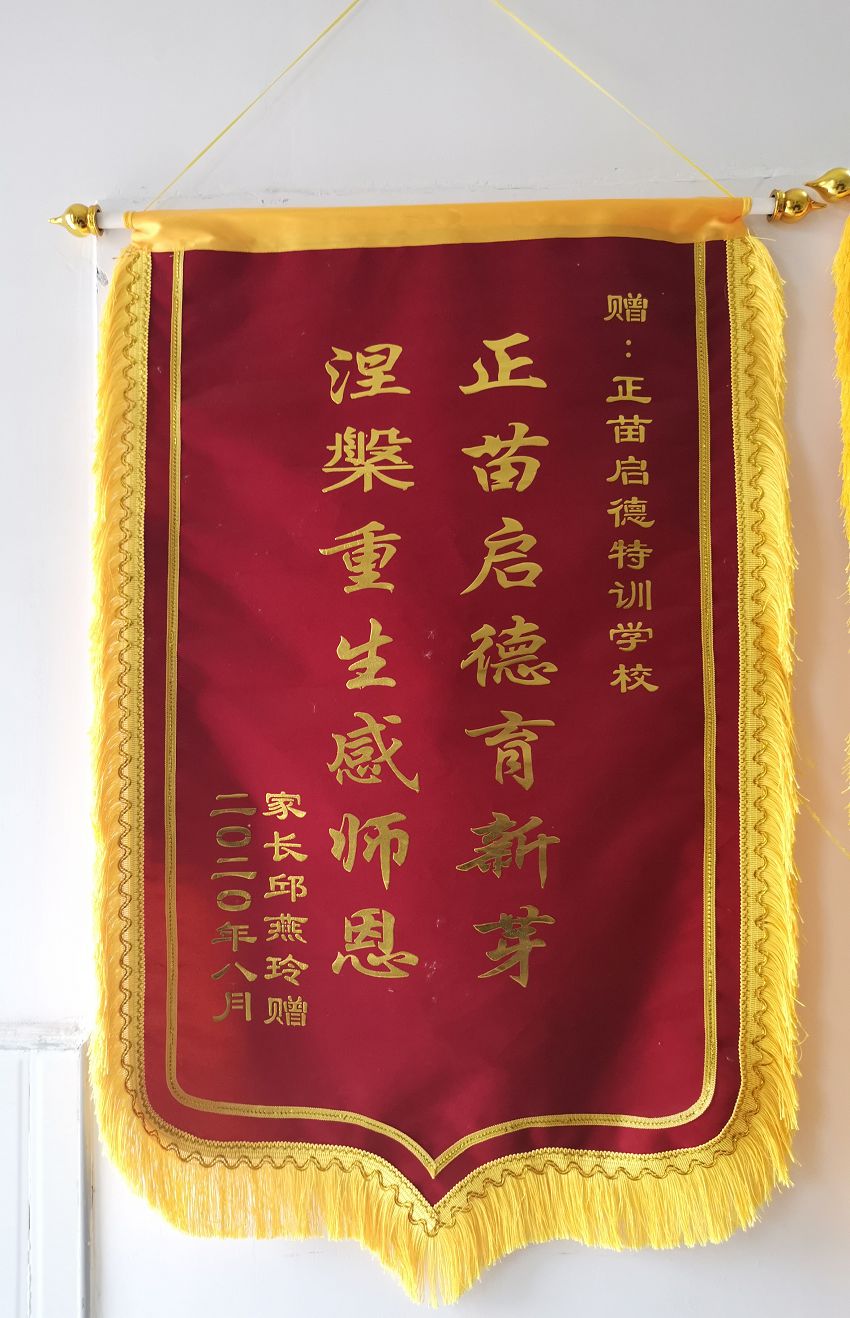 赠：正苗启德特训学校
正苗启德育新芽
涅槃重生感师恩
家长邱燕玲赠
二〇二〇年八月